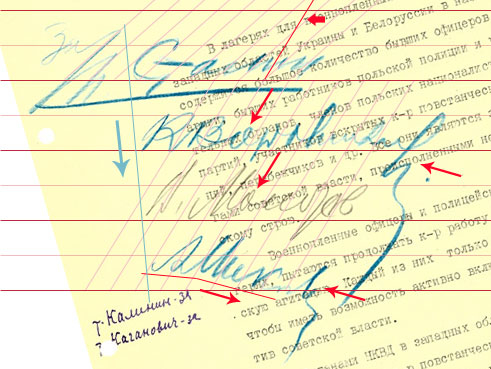 В лагерях для военнопленных
западных областей Украины и Белоруссии в нас
содержится большое количество бывших офицеров
армии, бывших работников польской полиции и
членов польских националист
партий, участников вскрытых к-р повстанчес
ний, перебежчиков и др. Все они являются
гами советской власти, преисполненными не
скому строю.
Военнопленные офицеры и полицейс
лагерях, пытаются продолжать к-р работу
скую агитацию. Каждый из них только
чтобы иметь возможность активно вклю
тив советской власти.
ганами НКВД в западных об
к-р повстанчес
за
И. Сталин
К. Ворошилов
В. Молотов
А. Мик
т. Калинин - за
т. Каганович - за